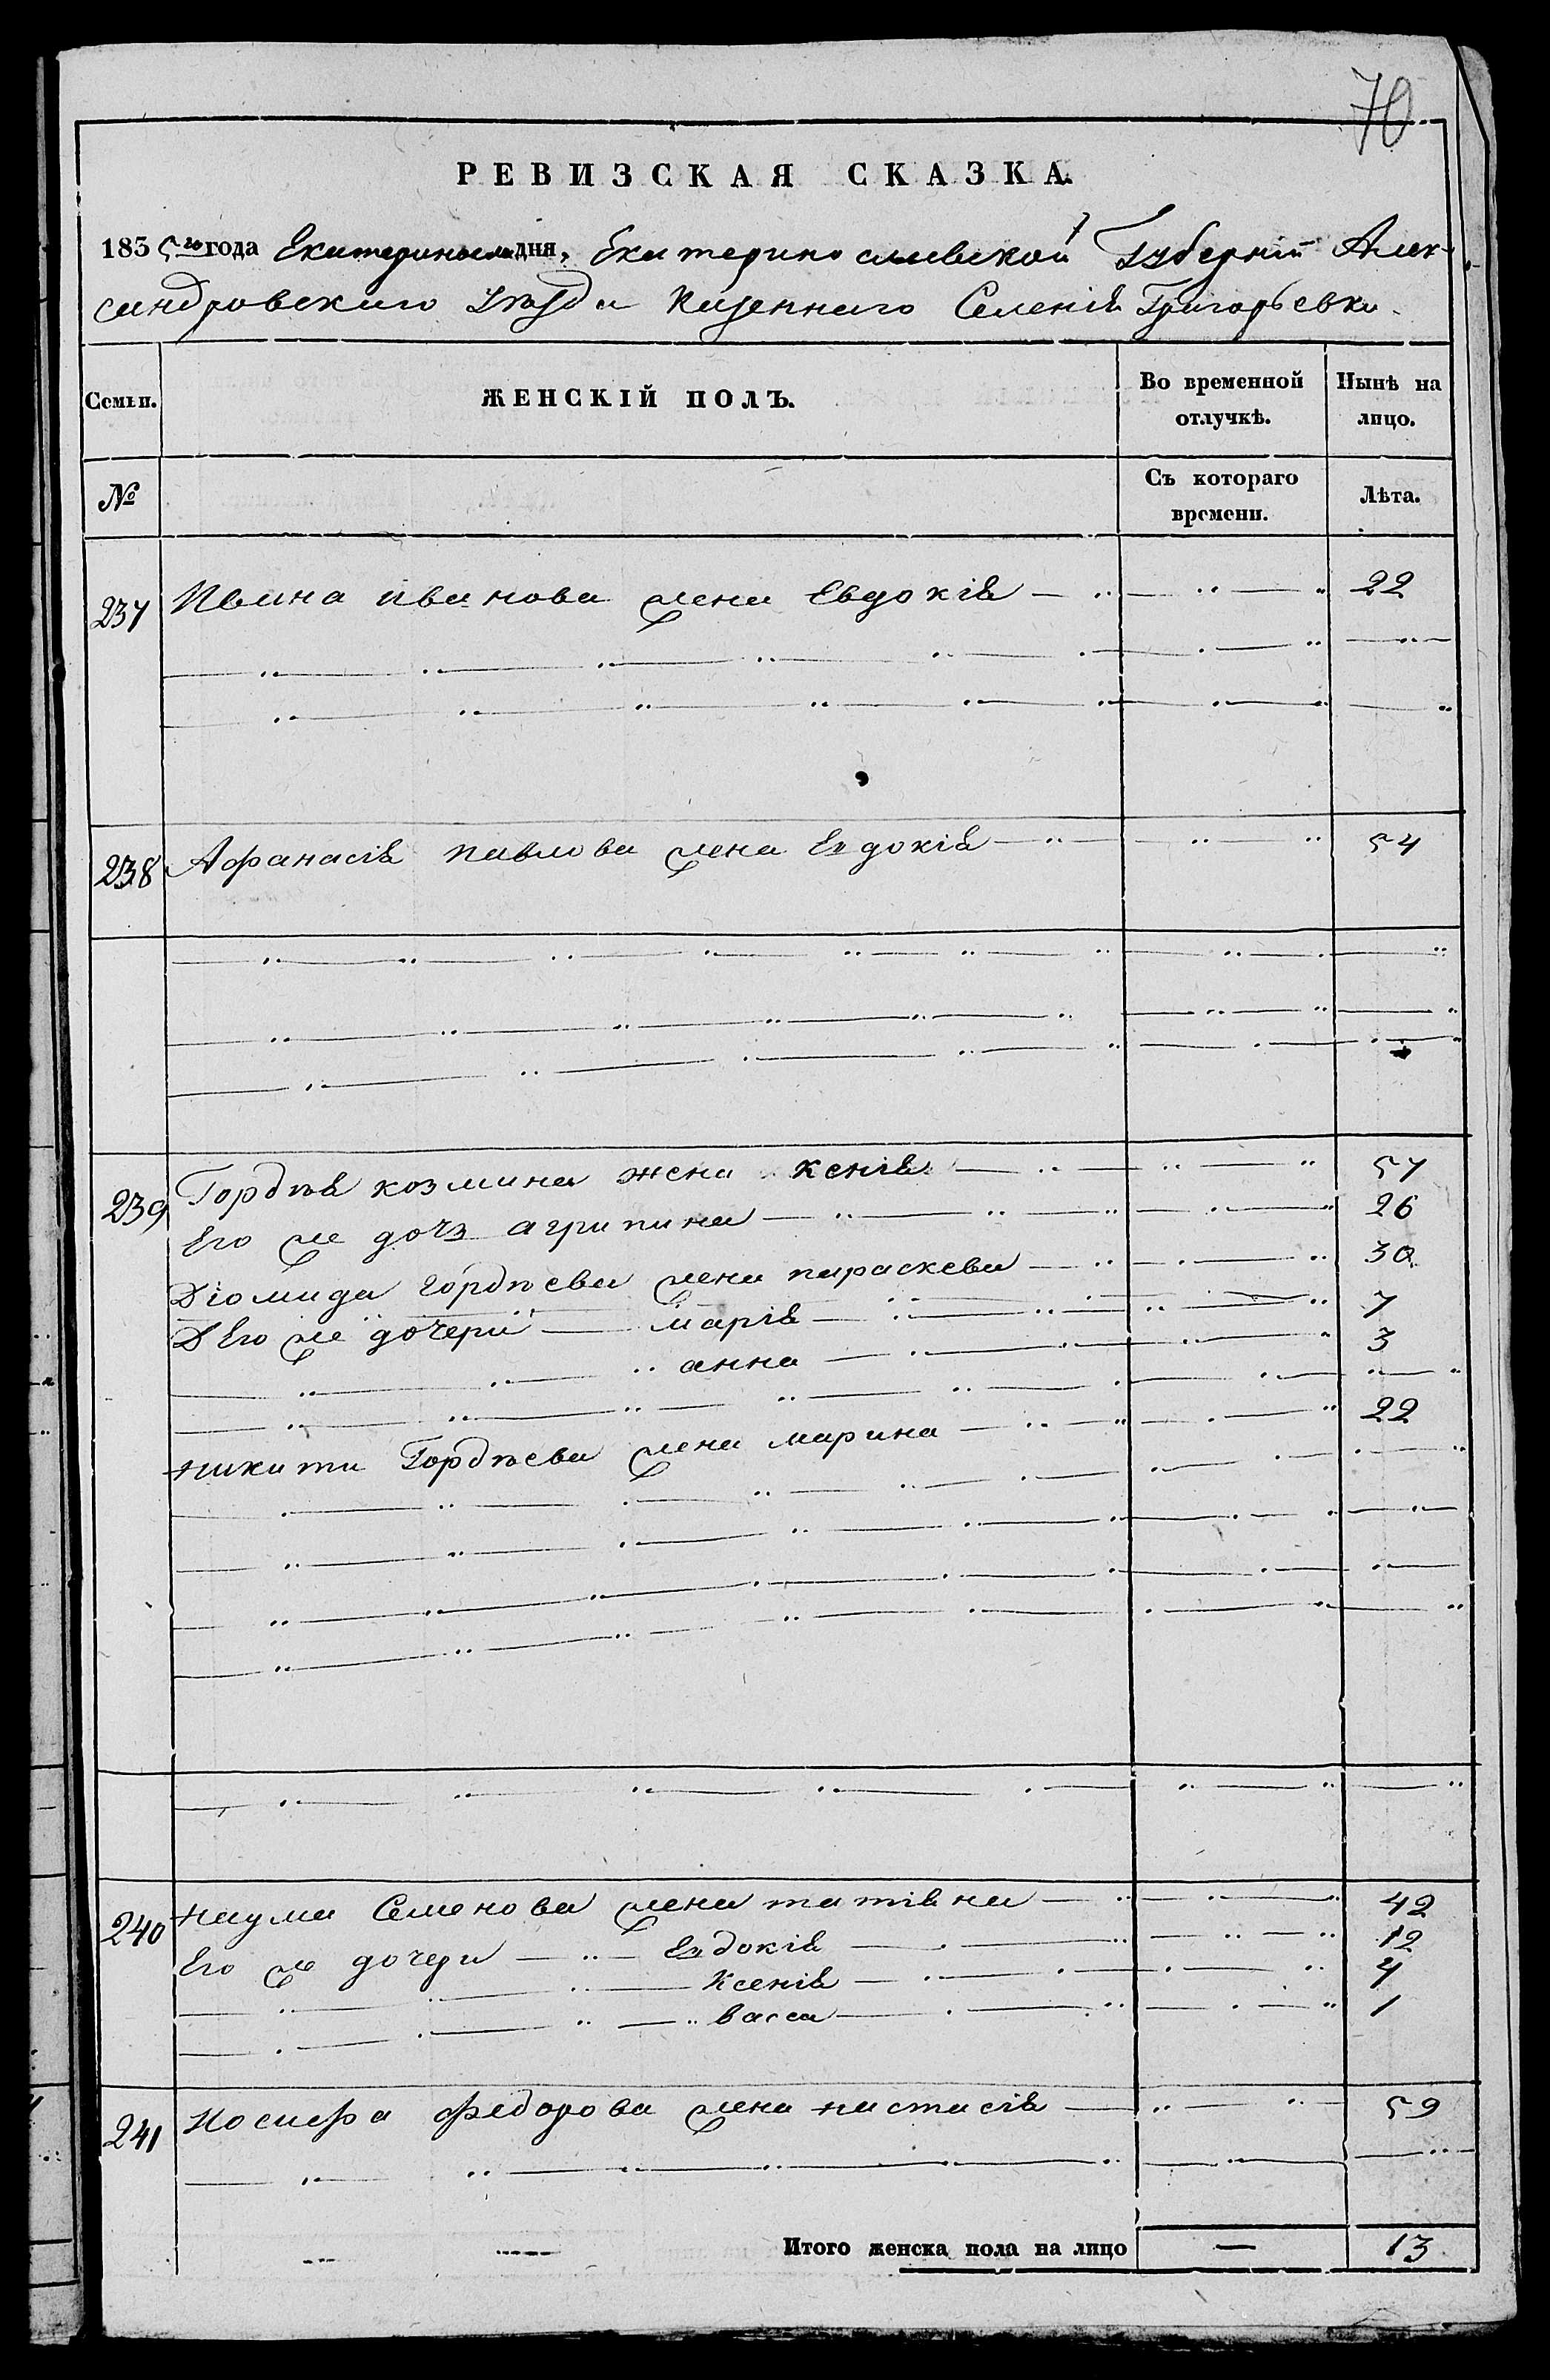 70
РЕВИЗСКАЯ СКАЗКА.
1835го года дня, Екатеринославской Губерніи Алек-
сандровского Уѣзда Казенного Селенія Григорьевки
Семьи. ЖЕНСКІЙ ПОЛЪ. Во временной отлучкѣ. Нынѣ на лицо.
№ Съ котораго времени. Лѣта.
237 Ивана иванова жена Евдокія 22
238 Афанасія павлова жена Евдокія 54
239 Гордѣя козмина жена ксенія 57
Его же дочь агрипина 26
Діомида гордѣева жена параскева 30
Его же дочери марія 7
анна 3
никити Гордѣева жена марина 22
240 наума Семенова жена татіяна 42
Его же дочери Евдокія 12
Ксенія 4
васса 1
241 Иосифа федорова жена настасія 59
Итого женска пола на лицо — 13